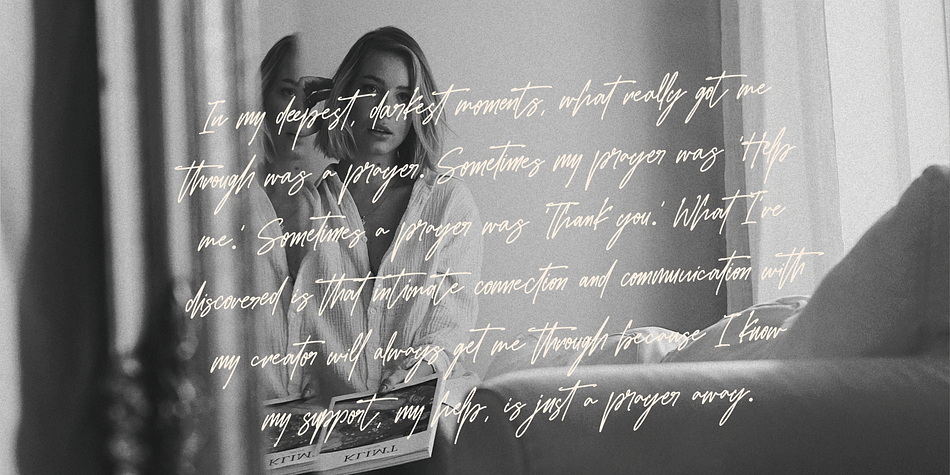 In my deepest, darkest moments, what really got me
through was a prayer. Sometimes my prayer was 'Help
me.' Sometimes a prayer was 'Thank you.' What I've
discovered is that intimate connection and communication with
my creator will always get me through because I know
my support, my help, is just a prayer away.
KLIMT
KLIMT